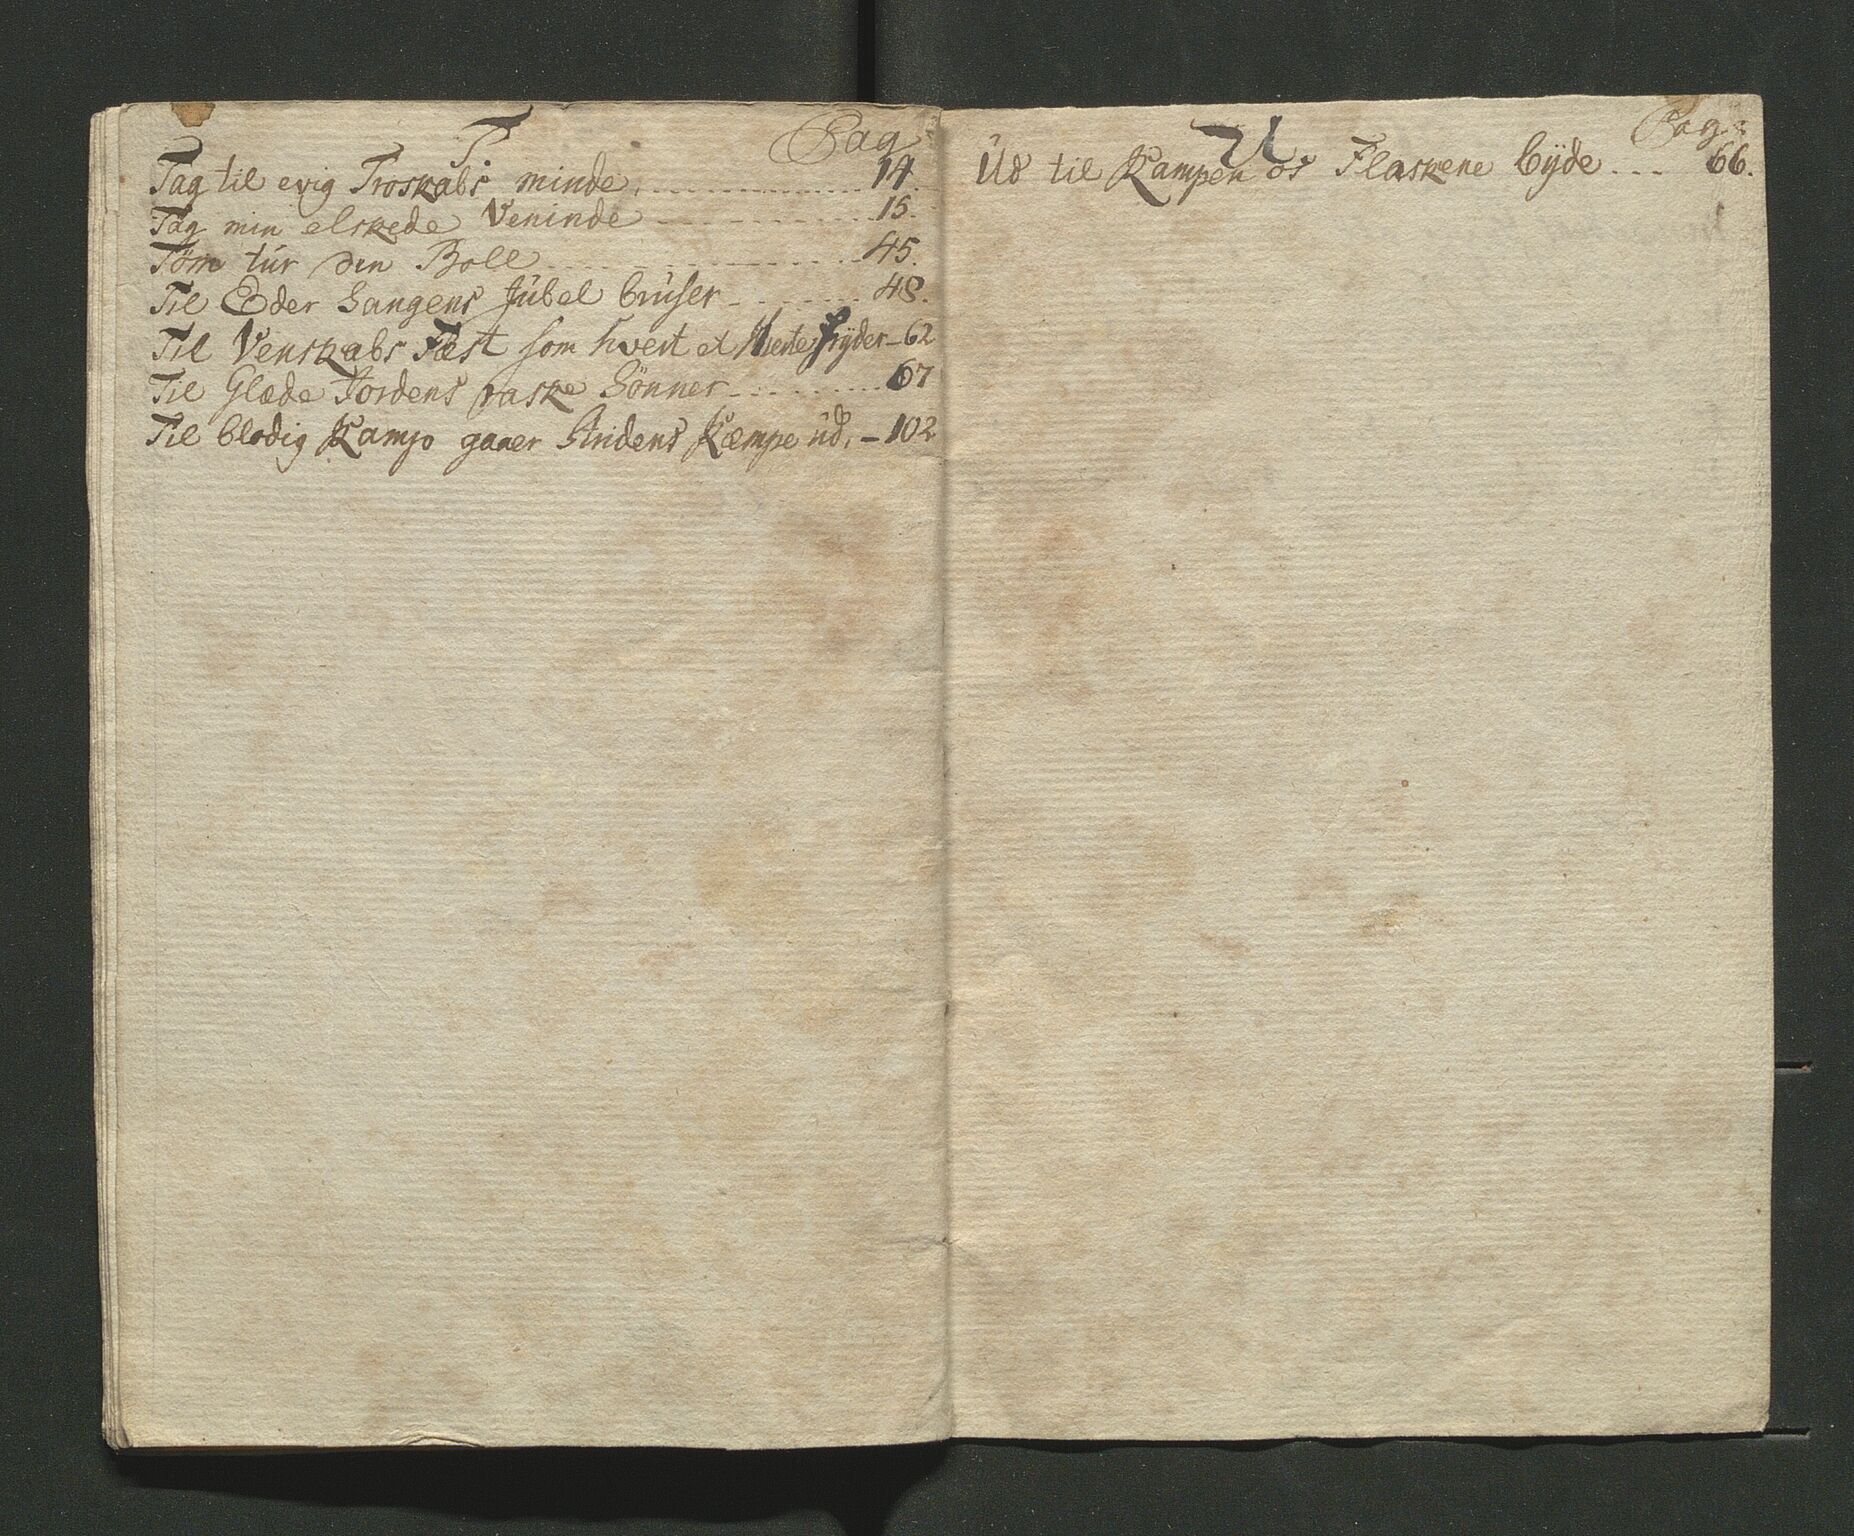 T. Pag
Tag til evig Troskabs minde. 14.
Tag min elskede Veninde 15.
Tøm tür den Boll 45.
Til Eder Sangens Jübel brüser 48.
Til Venskabs Fæst som hvert et Hierte fryder 62
Til Glæde Jordens raske Sönner 67
Til blodig Kamp gaaer Kæmpe üd. 102
U Pag:
Üd til Kampen os Flaskene byde 66.